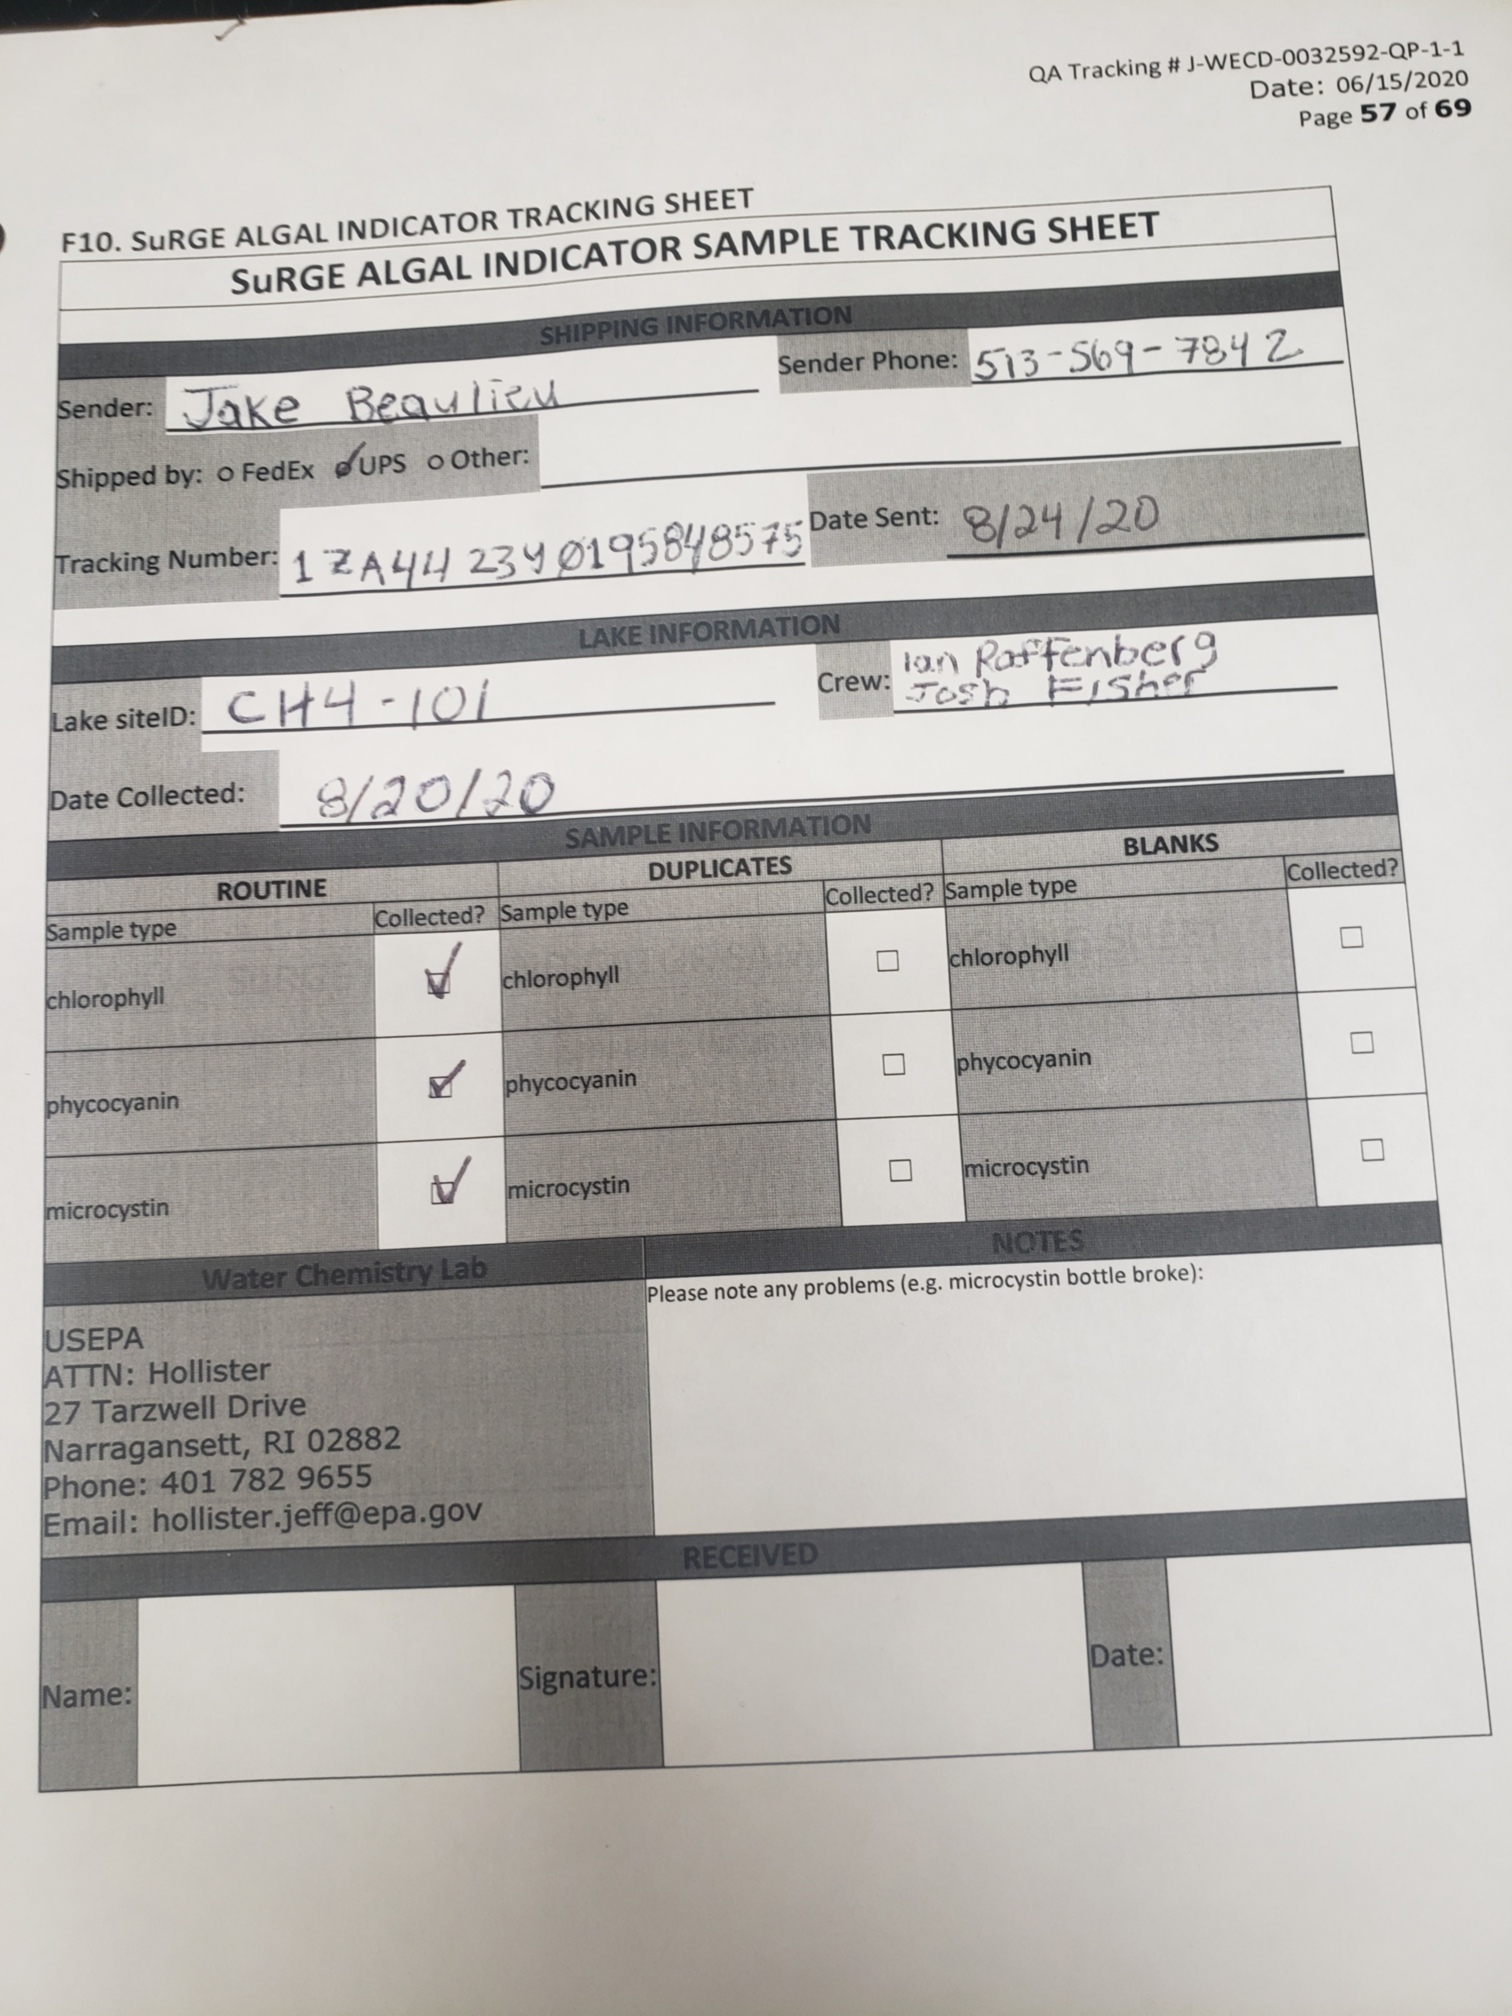 QA Tracking # J-WECD-0032592-QP-1-1
Date: 06/15/2020
Page 57 of 69
F10. SuRGE ALGAL INDICATOR TRACKING SHEET
SuRGE ALGAL INDICATOR SAMPLE TRACKING SHEET
SHIPPING INFORMATION
Sender: Jake Beaulieu Sender Phone: 513-569-7842
Shipped by: o FedEx o UPS o Other:
Tracking Number: 1ZA4423Y0195848575 Date Sent: 8/24/20
LAKE INFORMATION
Lake siteID: CH4-101 Crew: Ian Raffenberg
Josh Fisher
Date Collected: 8/20/20
SAMPLE INFORMATION
ROUTINE DUPLICATES BLANKS
Sample type Collected? Sample type Collected? Sample type Collected?
chlorophyll ☑ chlorophyll ☐ chlorophyll ☐
phycocyanin ☑ phycocyanin ☐ phycocyanin ☐
microcystin ☑ microcystin ☐ microcystin ☐
Water Chemistry Lab NOTES
USEPA Please note any problems (e.g. microcystin bottle broke):
ATTN: Hollister
27 Tarzwell Drive
Narragansett, RI 02882
Phone: 401 782 9655
Email: hollister.jeff@epa.gov
RECEIVED
Name: Signature: Date: